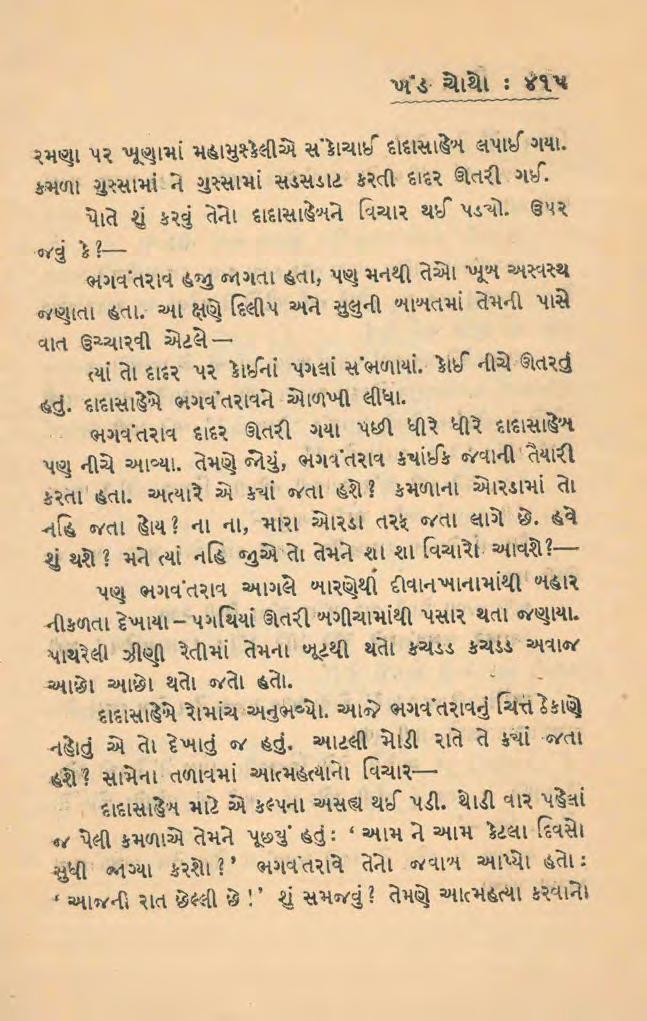 ખંડ ચોથો : ૪૧૫
રમણા પર ખૂણામાં મહામુશ્કેલીએ સંકોચાઈ દાદાસાહેબ લપાઈ ગયા.
કમળા ગુસ્સામાં ને ગુસ્સામાં સડસડાટ કરતી દાદર ઊતરી ગઈ.
પોતે શું કરવું તેનો દાદાસાહેબને વિચાર થઈ પડયો. ઉપર
જવું કે?—
ભગવંતરાવ હજી જાગતા હતા, પણ મનથી તેઓ ખૂબ અસ્વસ્થ
જણાતા હતા. આ ક્ષણે દિલીપ અને સુલુની બાબતમાં તેમની પાસે
વાત ઉચ્ચારવી એટલે—
ત્યાં તો દાદર પર કોઈનાં પગલાં સંભળાયાં. કોઈ નીચે ઊતરતું
હતું. દાદાસાહેબે ભગવંતરાવને ઓળખી લીધા.
ભગવંતરાવ દાદર ઊતરી ગયા પછી ધીરે ધીરે દાદાસાહેબ
પણ નીચે આવ્યા. તેમણે જોયું, ભગવંતરાવ કયાંઈક જવાની તૈયારી
કરતા હતા. અત્યારે એ કયાં જતા હશે? કમળાના ઓરડામાં તો
નહિ જતા હોય? ના ના, મારા ઓરડા તરફ જતા લાગે છે. હવે
શું થશે? મને ત્યાં નહિ જુએ તો તેમને શા શા વિચારો આવશે?—
પણ ભગવંતરાવ આગલે બારણેથી દીવાનખાનામાંથી બહાર
નીકળતા દેખાયા – પગથિયાં ઊતરી બગીચામાંથી પસાર થતા જણાયા.
પાથરેલી ઝીણી રેતીમાં તેમના બૂટથી થતો કચડડ કચડડ અવાજ
આછો આછો થતો જતો હતો.
દાદાસાહેબે રોમાંચ અનુભવ્યો. આજે ભગવંતરાવનું ચિત્ત ઠેકાણે
નહોતું એ તો દેખાતું જ હતું. આટલી મોડી રાતે તે કયાં જતા
હશે? સામેના તળાવમાં આત્મહત્યાનો વિચાર—
દાદાસાહેબ માટે એ કલ્પના અસહ્ય થઈ પડી. થોડી વાર પહેલાં
જ પેલી કમળાએ તેમને પૂછયું હતું: ‘ આમ ને આમ કેટલા દિવસો
સુધી જાગ્યા કરશો?’ ભગવંતરાવે તેનો જવાબ આપ્યો હતો:
‘ આજની રાત છેલ્લી છે!’ શું સમજવું? તેમણે આત્મહત્યા કરવાનો